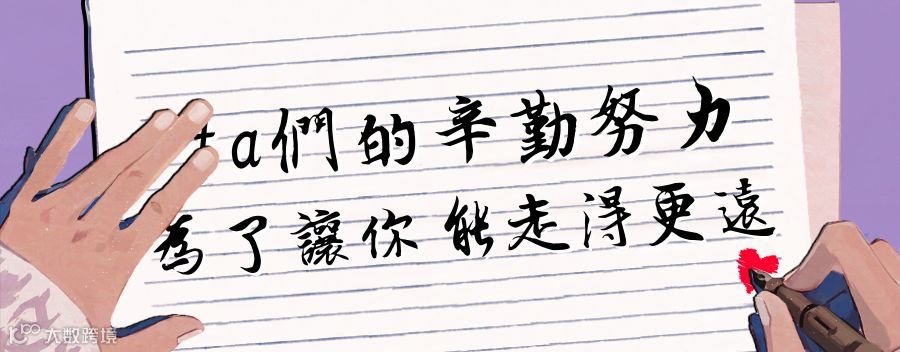 ta們的辛勤努力
為了讓你能走得更遠
大数跨境